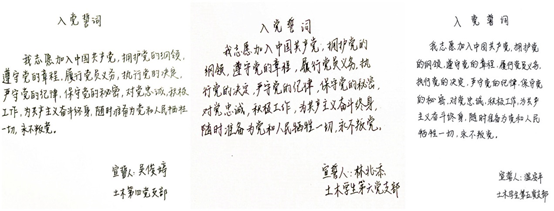 入党誓词
我志愿加入中国共产党，拥护党的纲领，
遵守党的章程，履行党员义务，执行党的决定，
严守党的纪律，保守党的秘密，对党忠诚，积极
工作，为共产主义奋斗终身，随时准备为党和人民牺牲一
切，永不叛党。
宣誓人：吴俊婷
土木第四党支部
入党誓词
我志愿加入中国共产党，拥护党的
纲领，遵守党的章程，履行党员义务，执
行党的决定，严守党的纪律，保守党的秘密，
对党忠诚，积极工作，为共产主义奋斗终身，
随时准备为党和人民牺牲一切，永不叛党。
宣誓人：林兆本
土木学生第六党支部
入党誓词
我志愿加入中国共产党，拥护党
的纲领，遵守党的章程，履行党员义务，
执行党的决定，严守党的纪律，保守党
的秘密，对党忠诚，积极工作，为共产
主义奋斗终身，随时准备为党和人民
牺牲一切，永不叛党。
宣誓人：安平
土木学生第五党支部